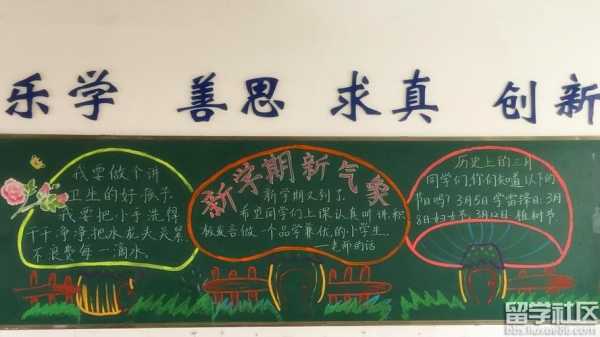 乐学 善思 求真 创新
我要做个讲
卫生的好孩子.
我要把小手洗得
干干净净把水龙头关紧
不浪费每一滴水.
新学期新气象
新学期又到了.
希望同学们上课认真听讲.积
极发言做一个品学兼优的小学生.
——老师的话
历史上的三月
同学们,你们知道以下的
节日吗?3月5日学雷锋日.3月
8日妇女节.3月12日植树节
留学社区
bbs.liuxue86.com